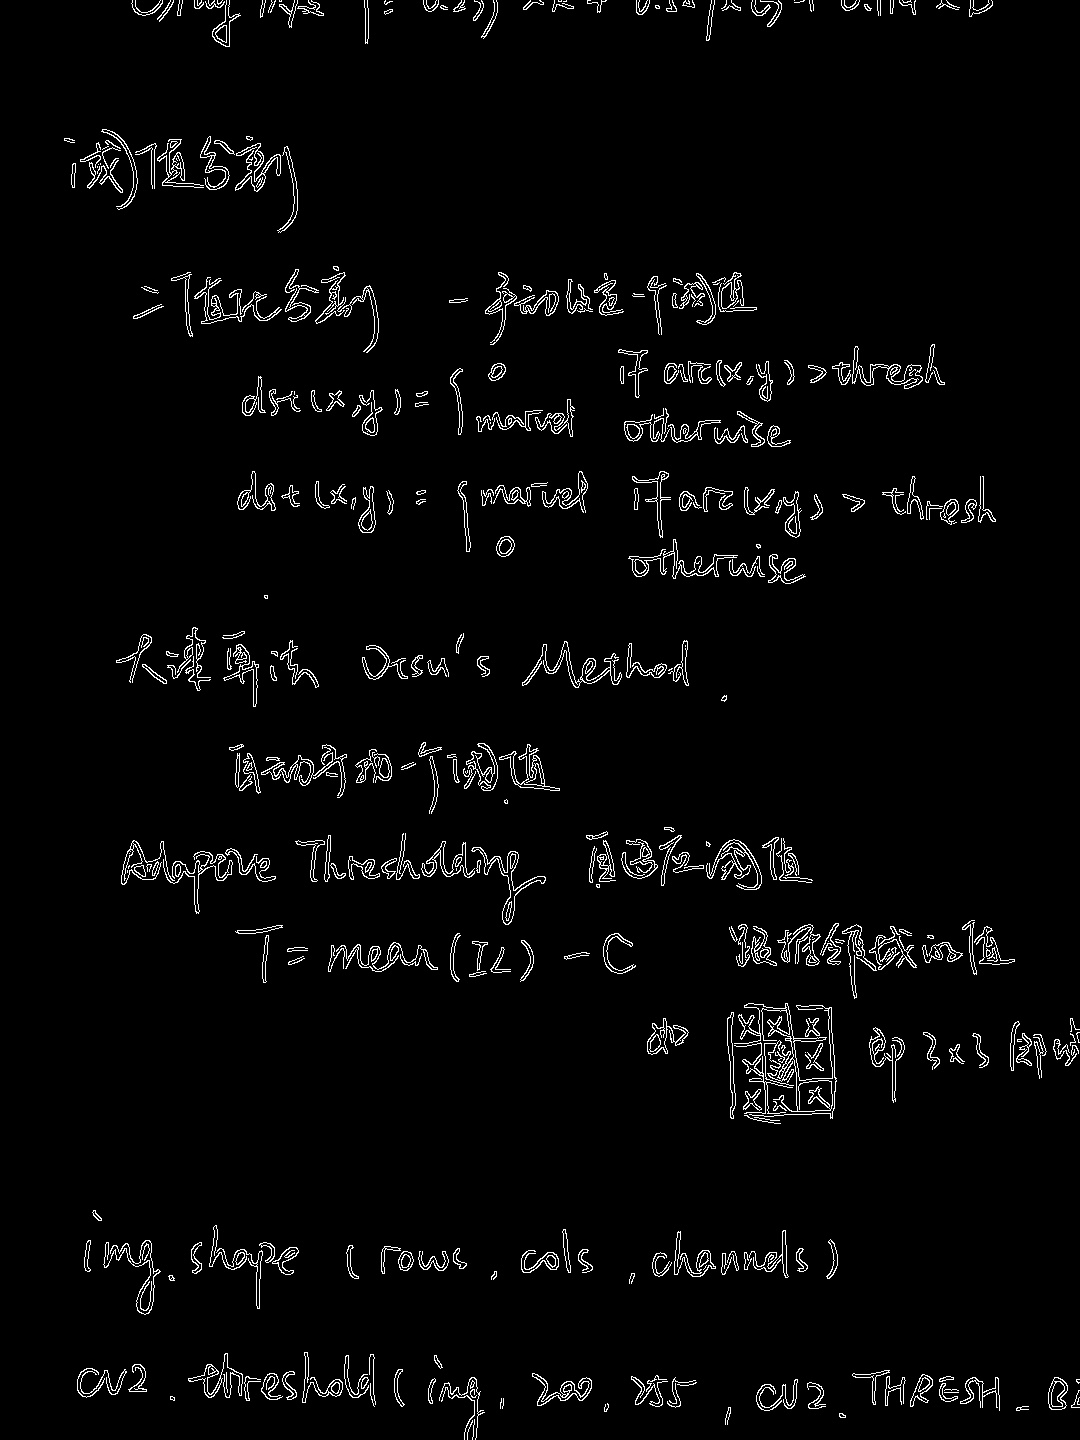 阈值分割
二值化分割 一手动设定一个阈值
dst(x,y) = { 0 if arc(x,y) > thresh
marvel otherwise
dst(x,y) = { marvel if arc(x,y) > thresh
0 otherwise
大津算法 Otsu's Method.
自动寻找一个阈值
Adaptive Thresholding 自适应阈值
T = mean(IL) - C 跟据领域的值
如 X X X 即 3x3 邻域
X X
X X X
img.shape (rows, cols, channels)
cv2.threshold(img, 200, 255, cv2.THRESH_BI